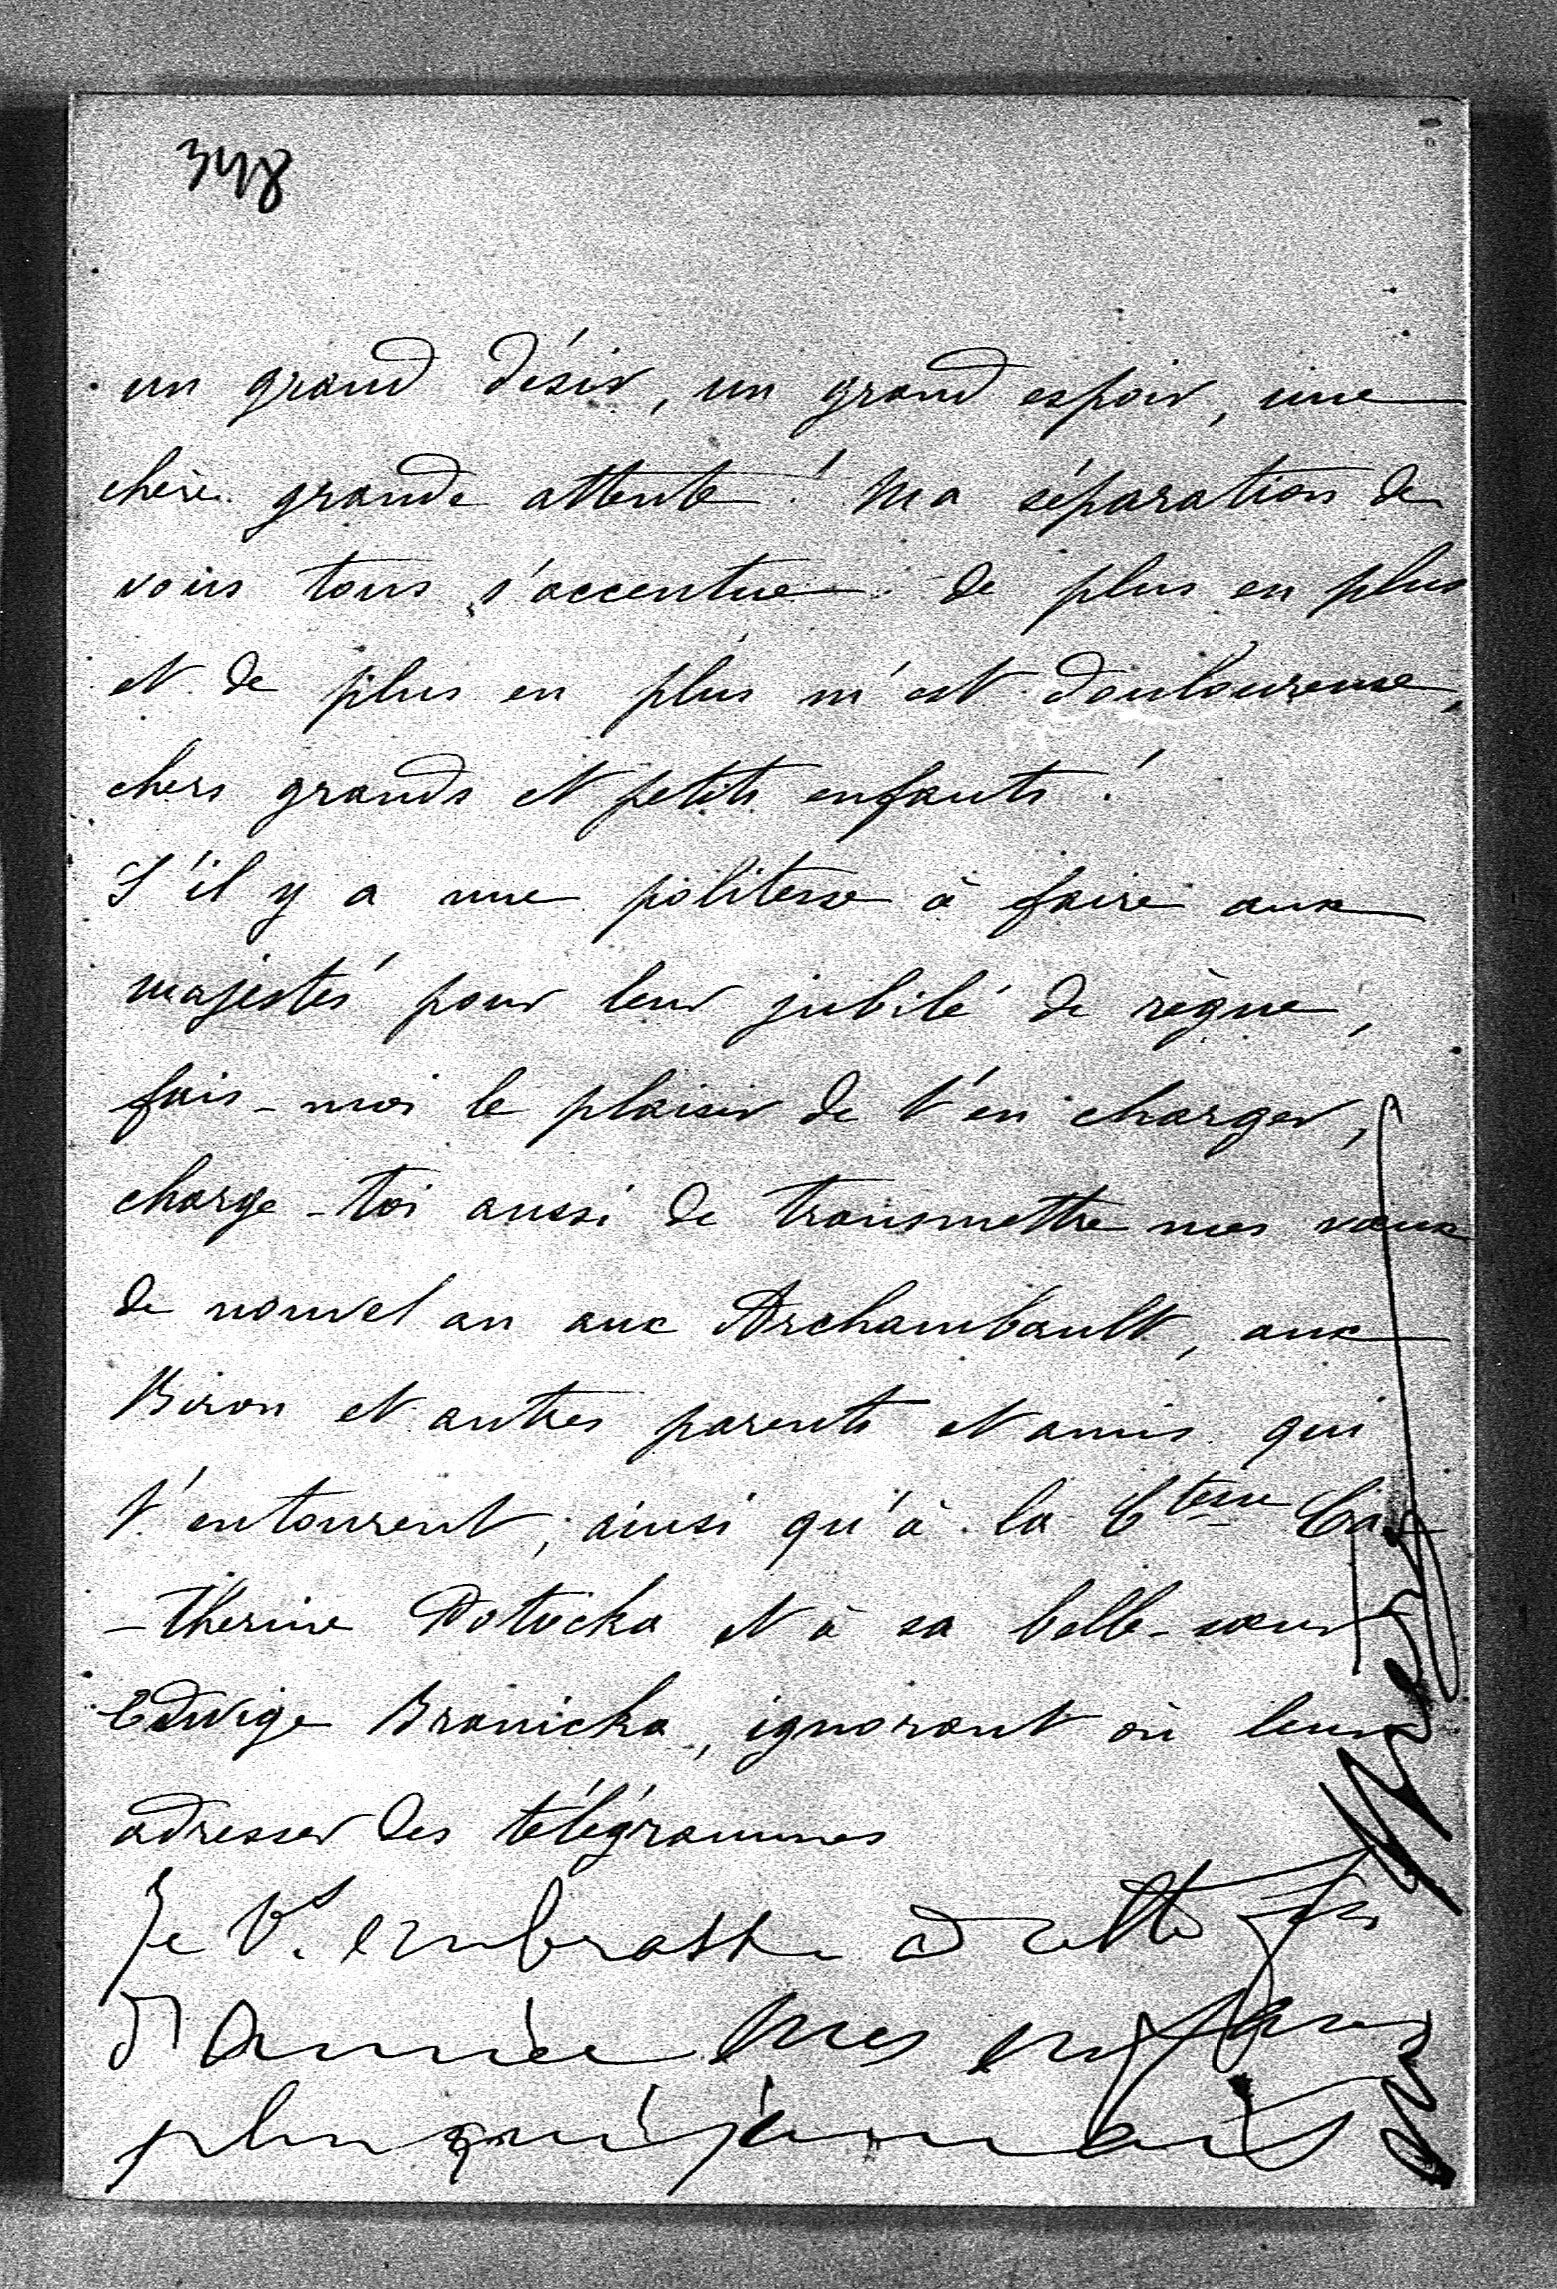 348
un grand désir, un grand espoir, une
chère grande attente ! Ma séparation de
vous tous s'accentue de plus en plus
et de plus en plus m'est douloureuse,
chers grands et petits enfants !
S'il y a une politesse à faire aux
majestés pour leur jubilé de règne,
fais-moi le plaisir de t'en charger,
charge-toi aussi de transmettre mes vœux
de nouvel an aux Archambault, aux
Biron et autres parents et amis qui
t'entourent, ainsi qu'à la Ctesse Ca-
-therine Potocka et à sa belle-sœur
Edwige Branicka, ignorant où leur
adresser des télégrammes
Je Vs embrasse à cette fin
d'année mes enfans
plus qu'jamais